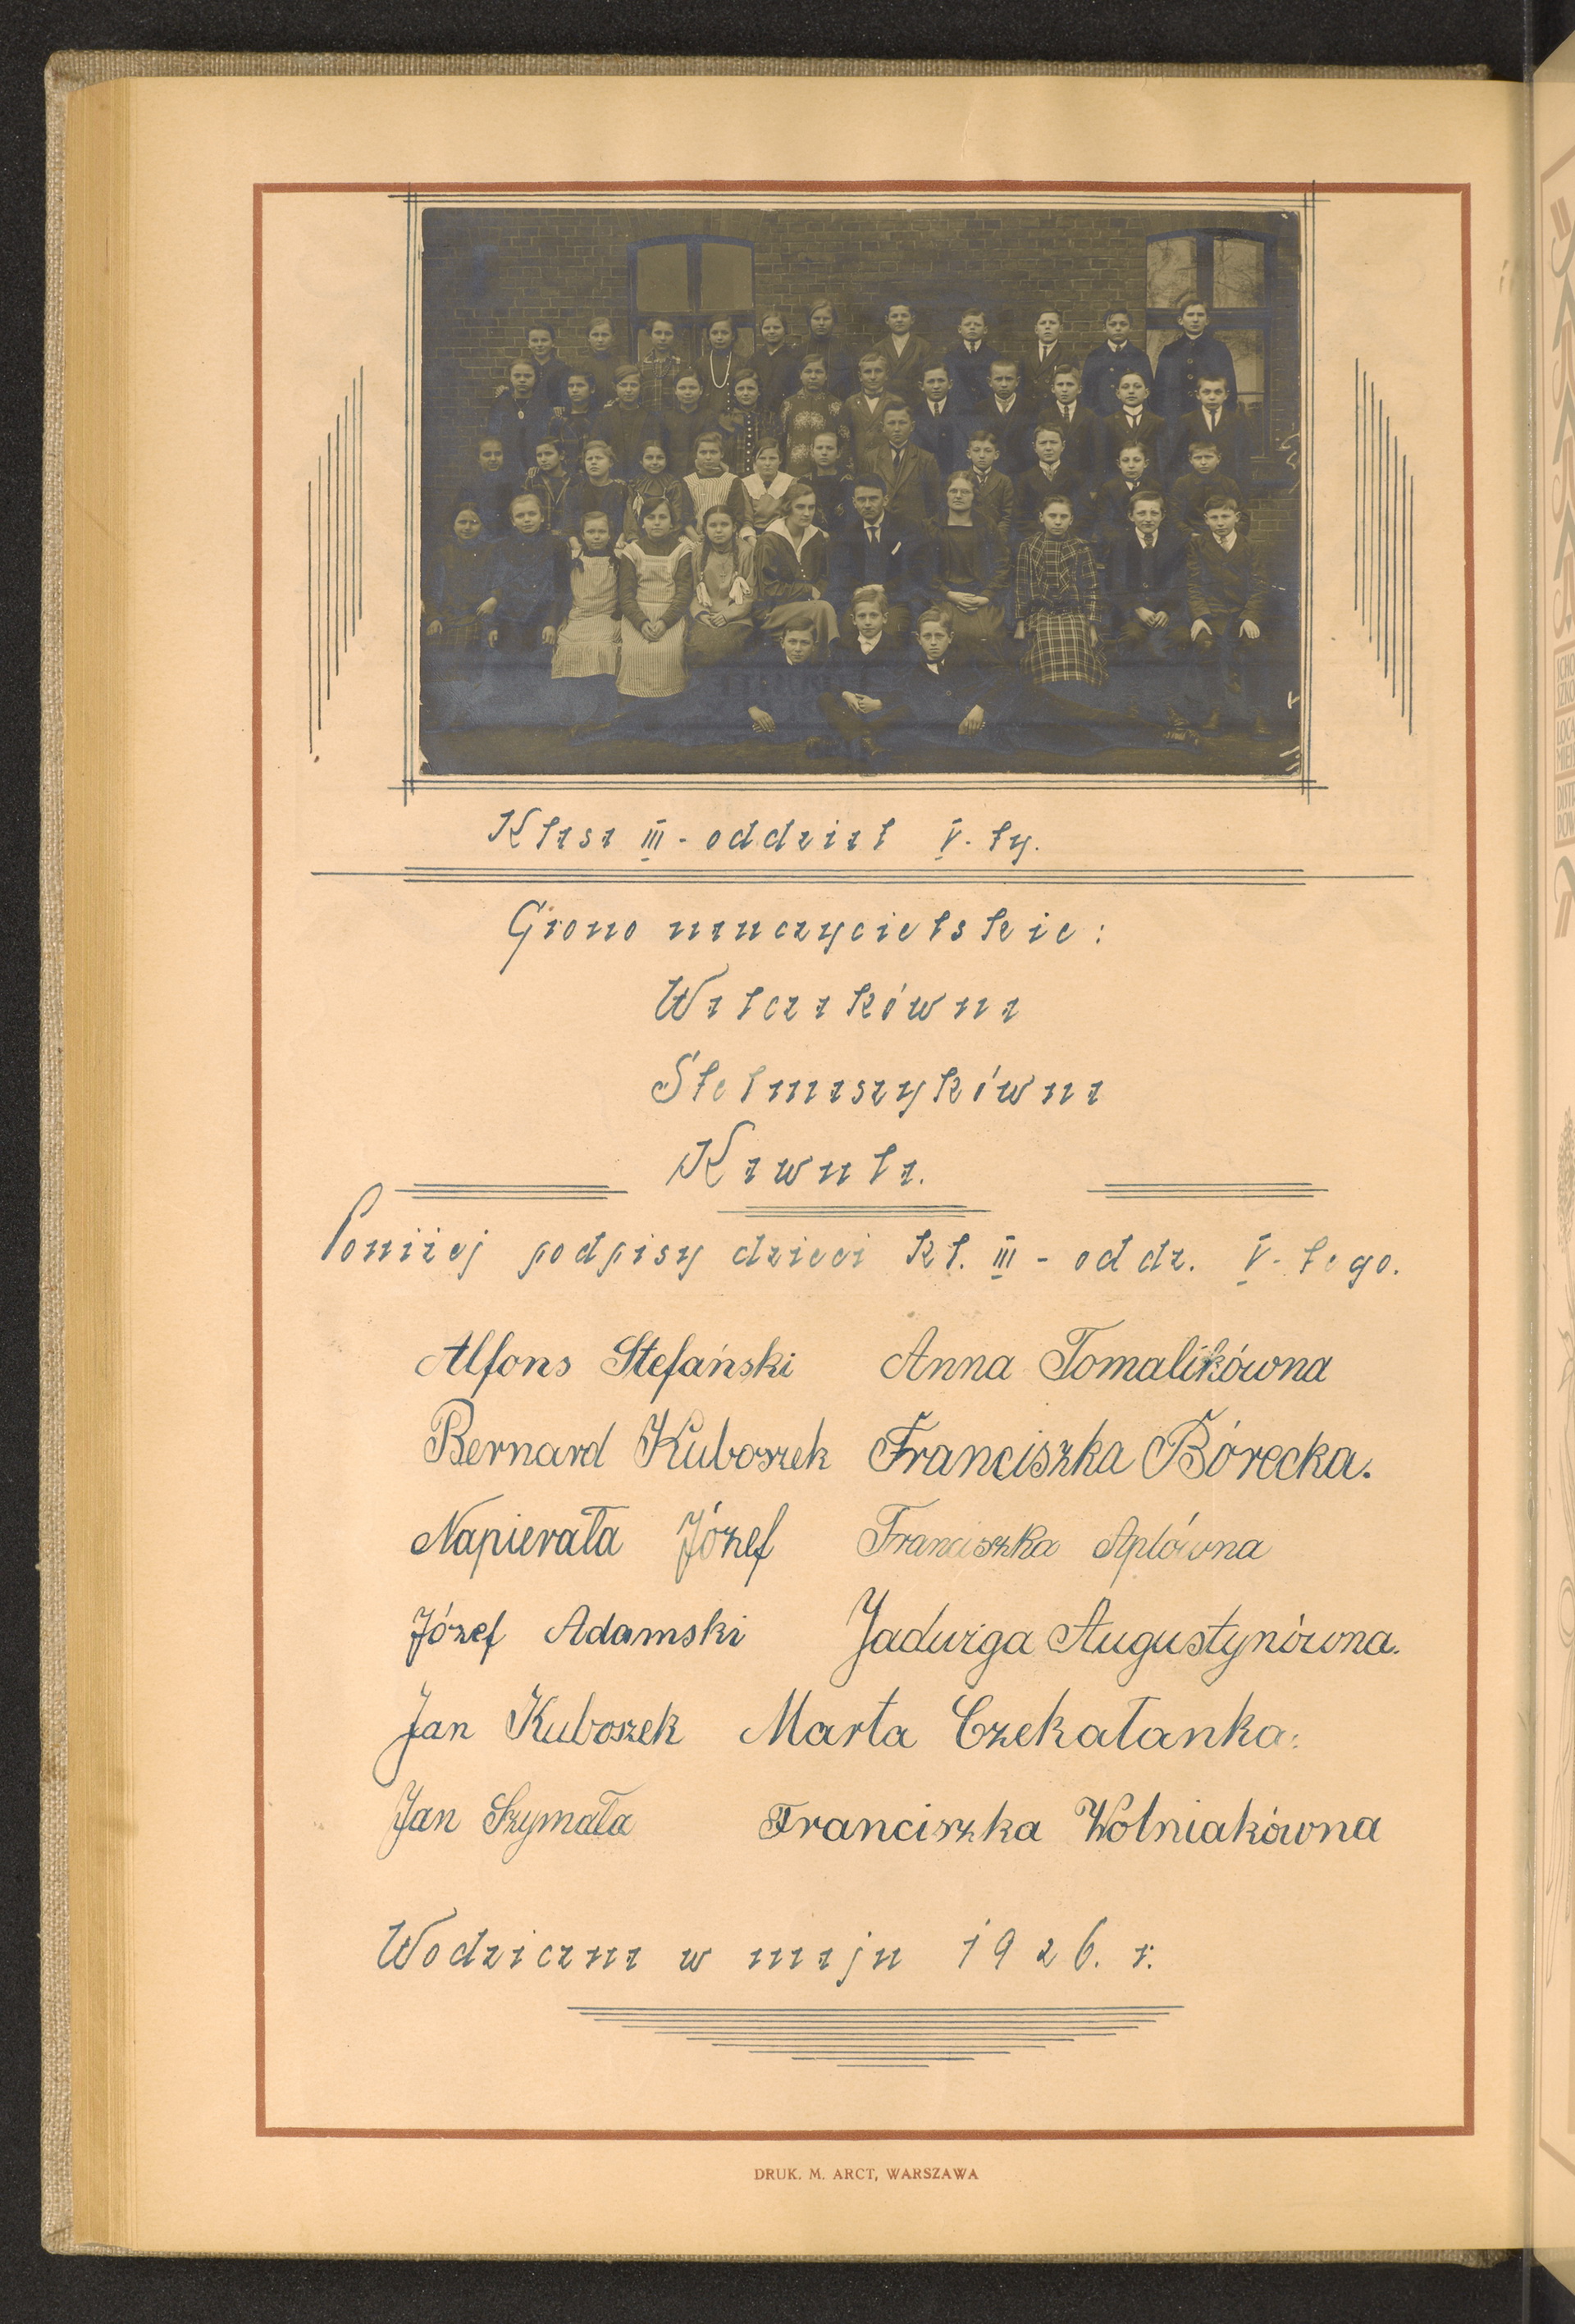 Klasa III - oddział V-ty.
Grono nauczycielskie:
Walczakówna
Stelmaszykówna
Kawula.
Poniżej podpisy dzieci kl. III - oddz. V-tego.
Alfons Stefański Anna Tomalikówna
Bernard Kuboszek Franciszka Bórecka.
Napierała Józef Franciszka Aplówna
Józef Adamski Jadwiga Augustynówna.
Jan Kuboszek Marta Czekałanka.
Jan Szymała Franciszka Wolniakówna
Wodziczna w maju 1926. r.
DRUK. M. ARCT, WARSZAWA